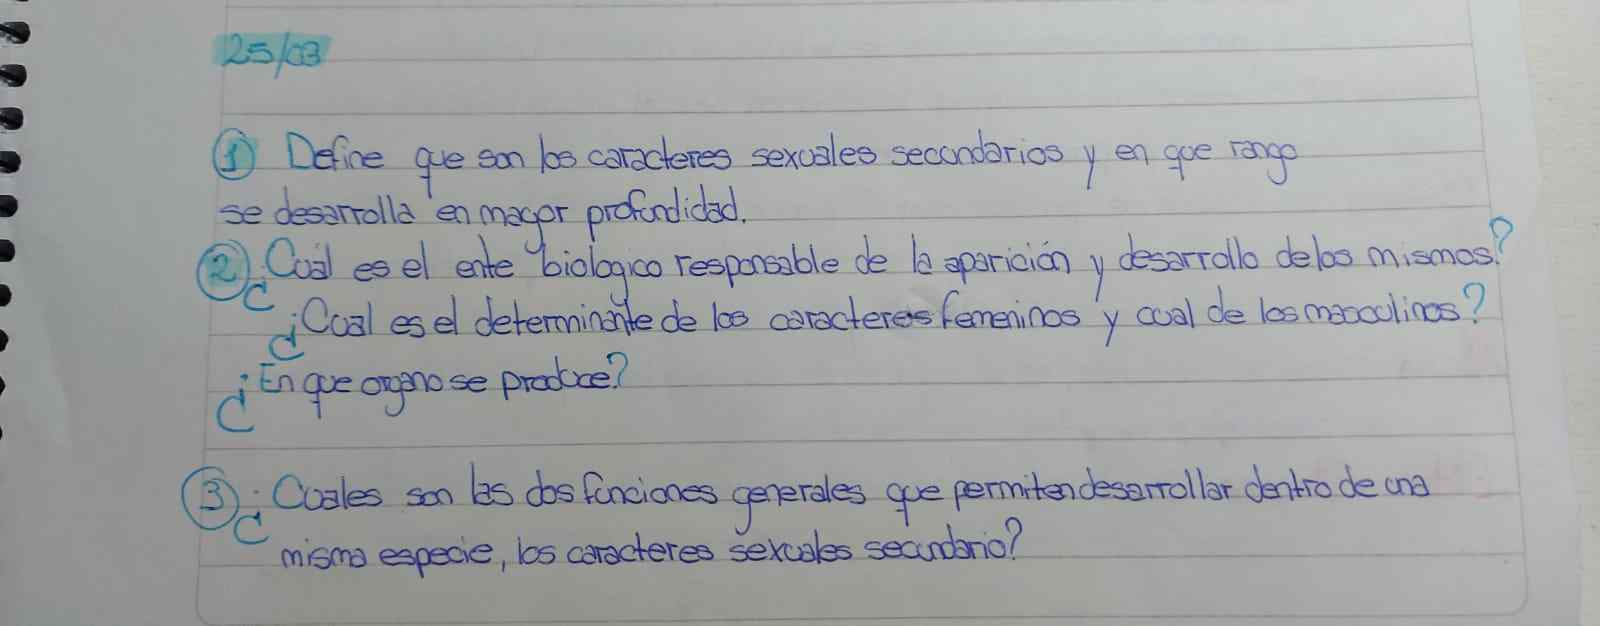 25/03
① Define que son los caracteres sexuales secundarios y en que rango
se desarrolla en mayor profundidad.
② ¿Cuál es el ente biologico responsable de la aparición y desarrollo delos mismos?
¿Cual es el determinante de los caracteres femeninos y cual de los masculinos?
¿En que organo se produce?
③ ¿Cuales son las dos funciones generales que permiten desarrollar dentro de una
misma especie, los caracteres sexuales secundario?